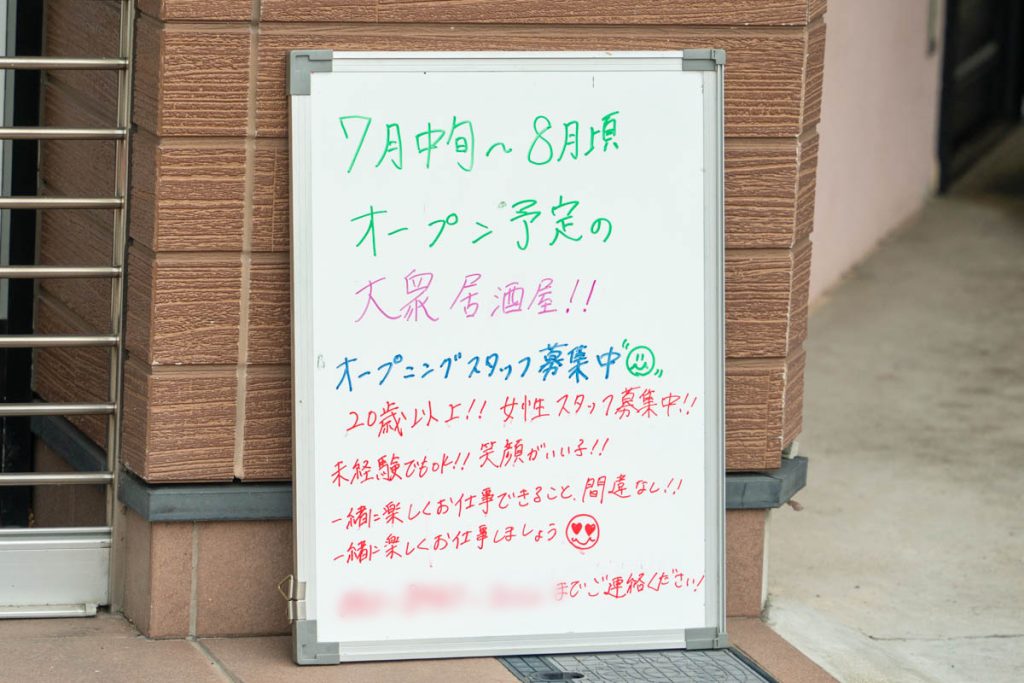 7月中旬〜8月頃
オープン予定の
大衆居酒屋!!
オープニングスタッフ募集中
20歳以上!! 女性スタッフ募集中!!
未経験でもOK!! 笑顔がいい子!!
一緒に楽しくお仕事できること、間違なし!!
一緒に楽しくお仕事しましょう
までご連絡ください!